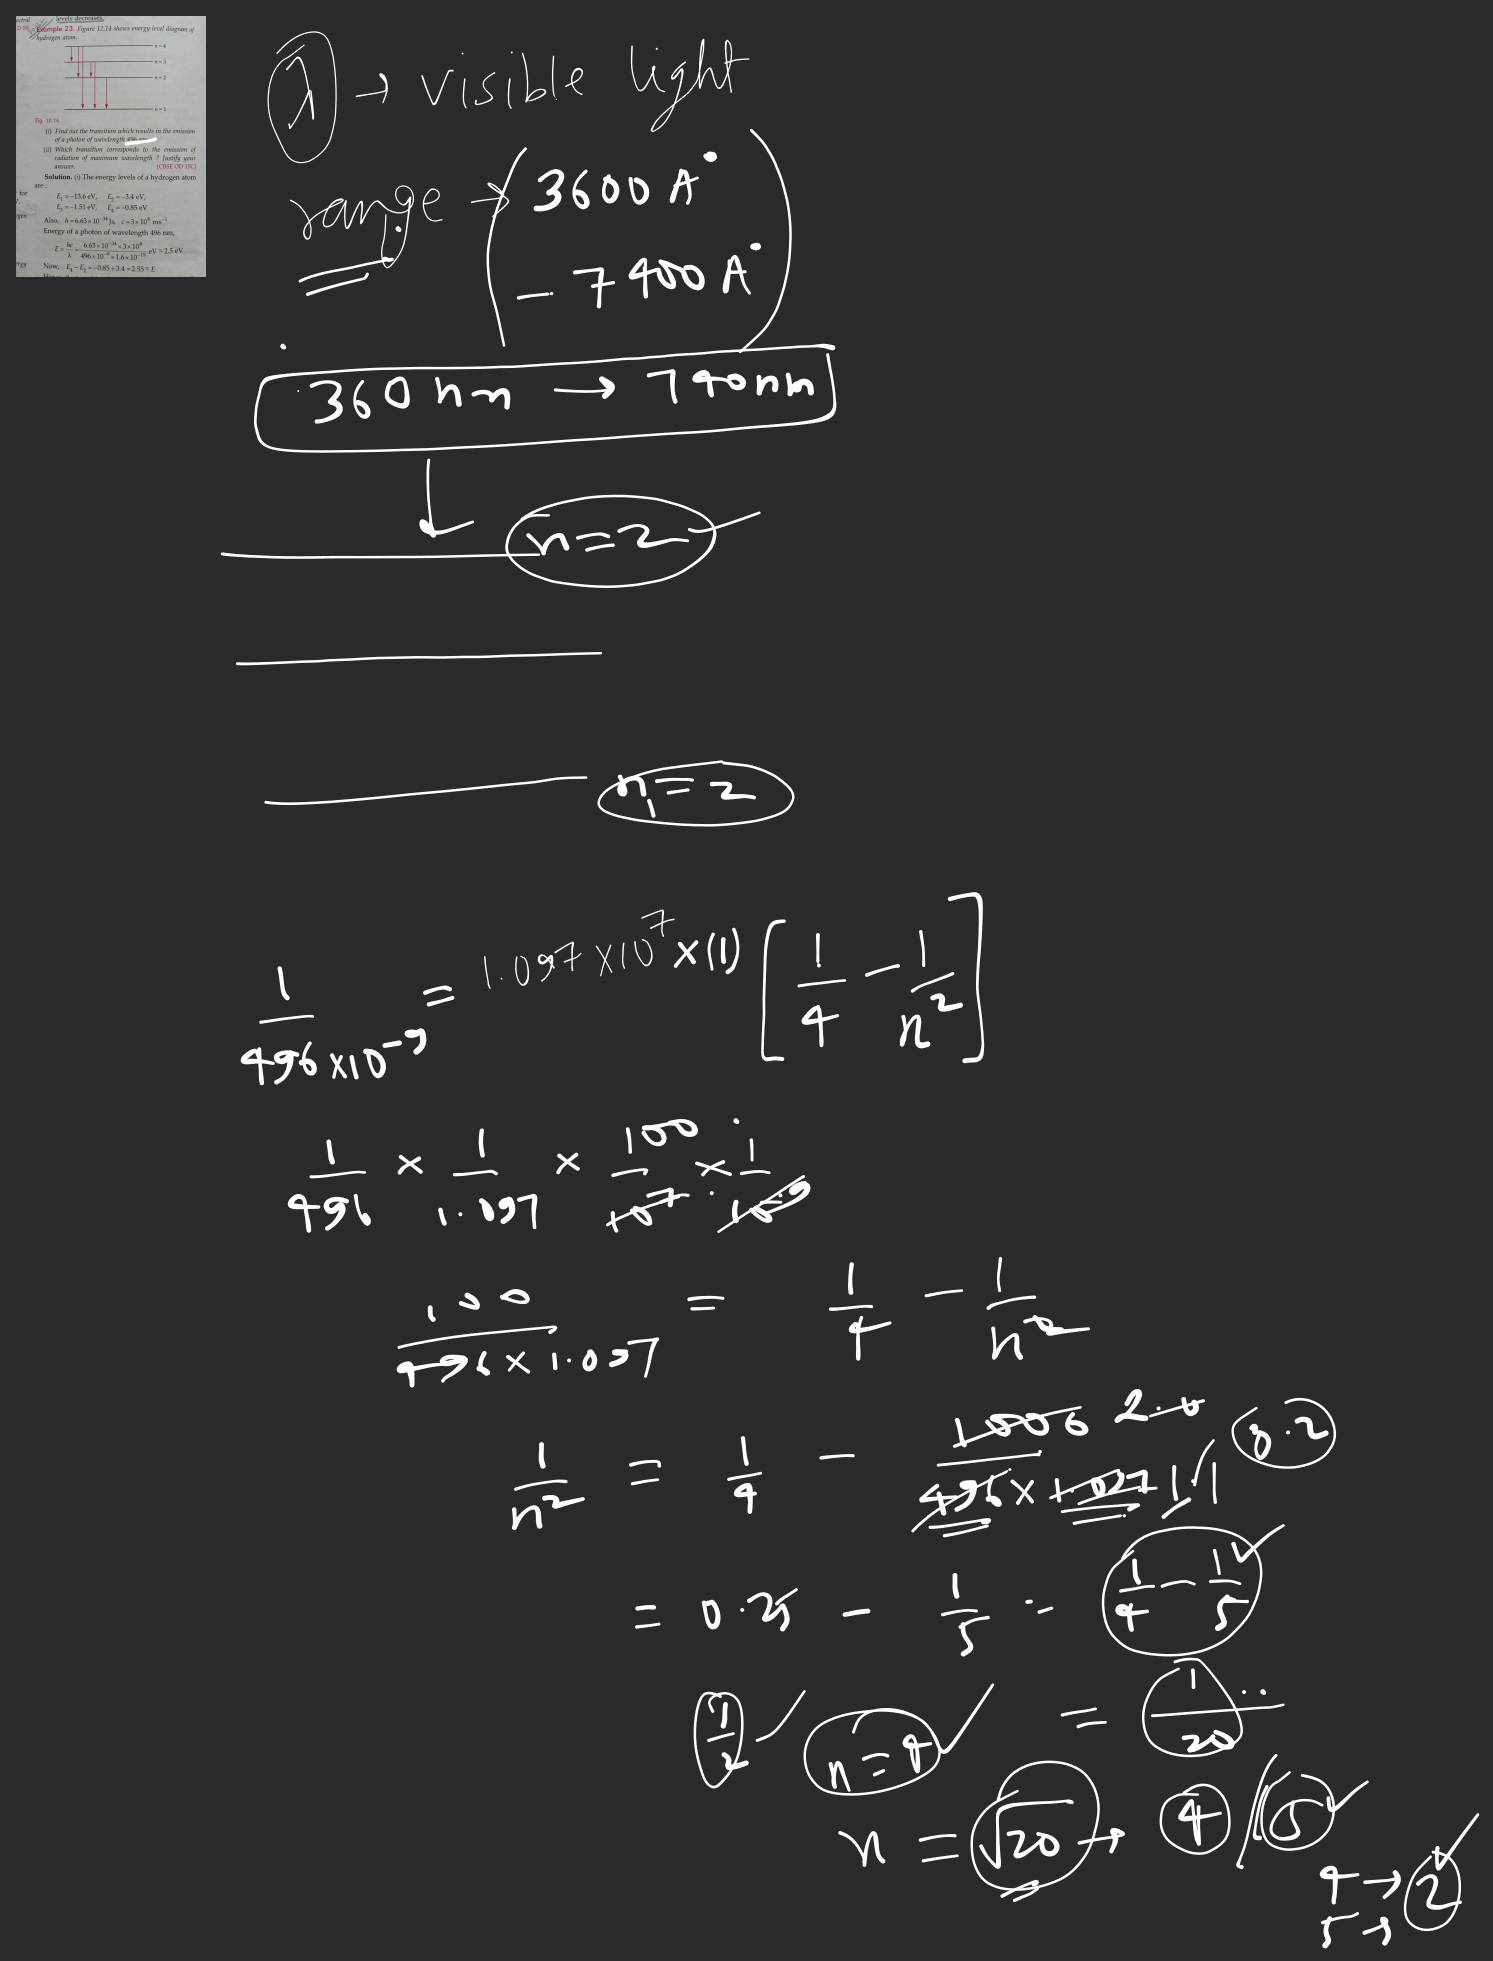 levels decreases.
Example 23. Figure 12.14 shows energy level diagram of
hydrogen atom.
n = 4
n = 3
n = 2
n = 1
Fig. 12.14
(i) Find out the transition which results in the emission
of a photon of wavelength 496 nm.
(ii) Which transition corresponds to the emission of
radiation of maximum wavelength ? Justify your
answer. [CBSE OD 19C]
Solution. (i) The energy levels of a hydrogen atom
are :
E₁ = -13.6 eV, E₂ = -3.4 eV,
E₃ = -1.51 eV, E₄ = -0.85 eV
Also, h = 6.63 × 10⁻³⁴ Js, c = 3 × 10⁸ ms⁻¹
Energy of a photon of wavelength 496 nm,
E = hc/λ = 6.63 × 10⁻³⁴ × 3 × 10⁸ / 496 × 10⁻⁹ × 1.6 × 10⁻¹⁹ eV = 2.5 eV
Now, E₄ - E₂ = -0.85 + 3.4 = 2.55 ≈ E
λ → visible light
range → (3600 A°
– 7400 A°)
360 nm → 740 nm
n = 2
n₁ = 2
1/496×10⁻⁹ = 1.097 ×10⁷ ×(1) [1/4 – 1/n²]
1/496 × 1/1.097 × 100/10⁷ × 1/10⁻⁹
100/496 × 1.097 = 1/4 – 1/n²
1/n² = 1/4 –
= 0.25 – 1/5 = 1/4 – 1/5
1/2 n = 4 = 1/20
n = √20 → 4 / 5
4 → 2
5 →